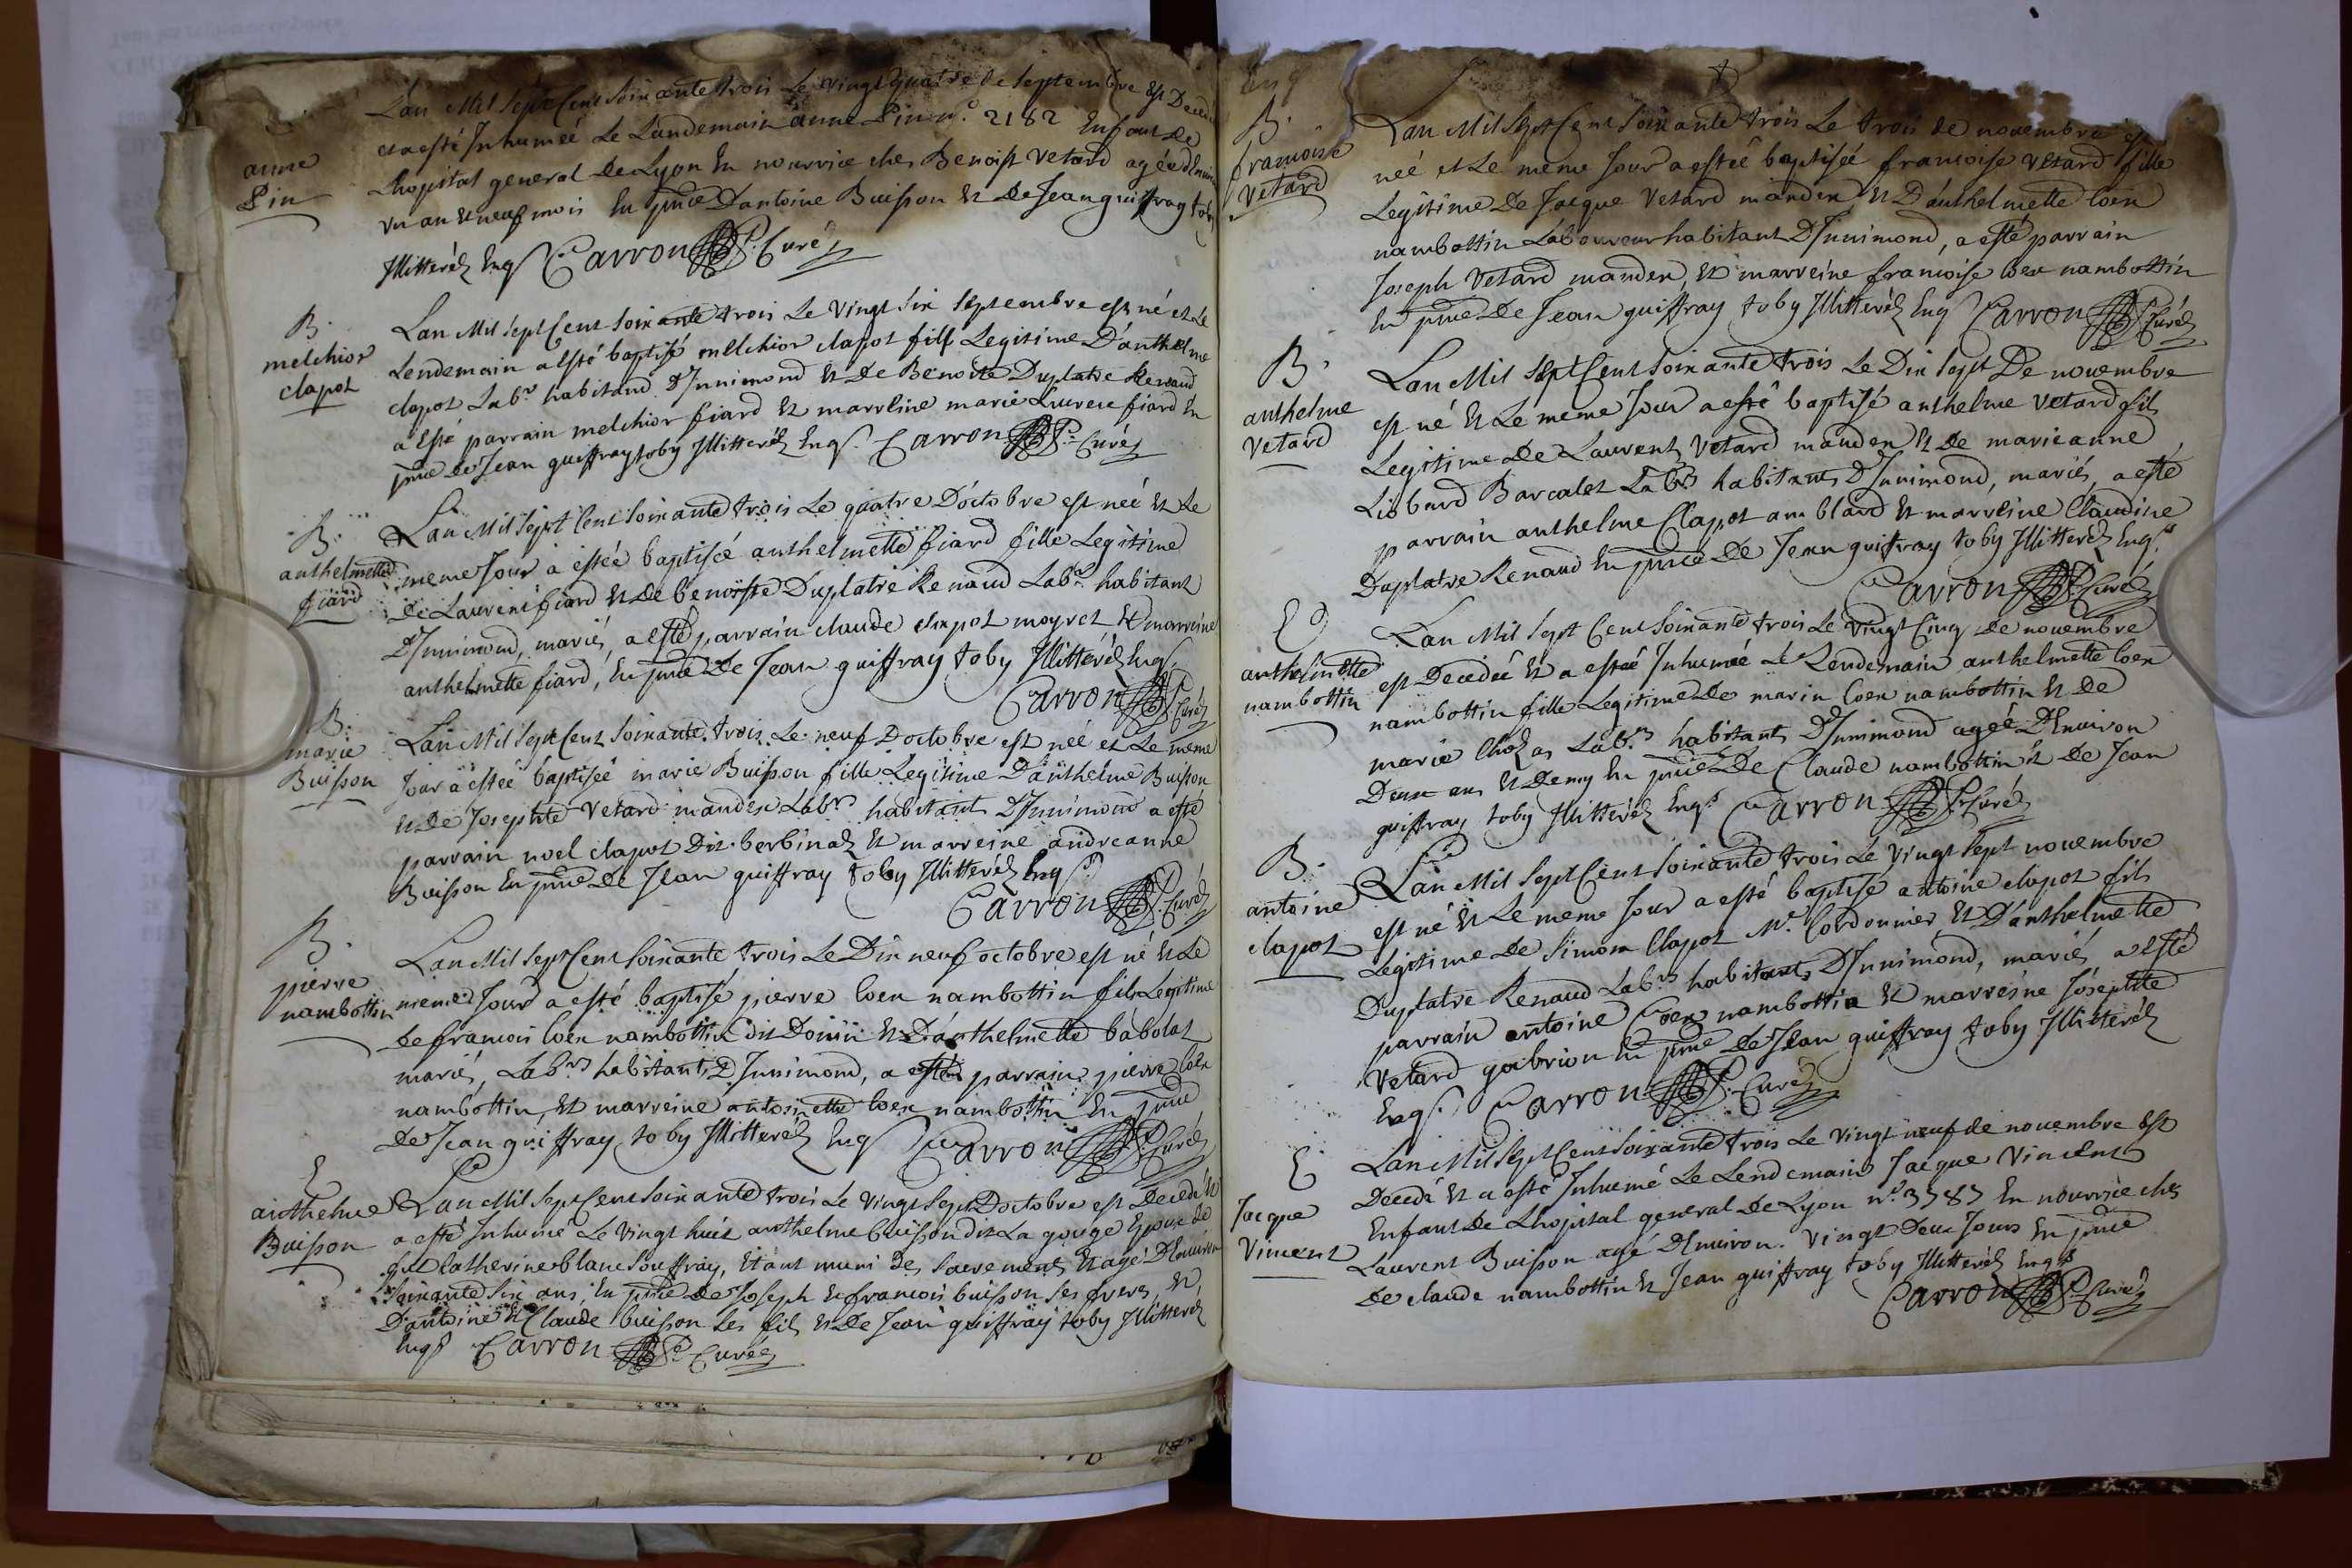 Lan Mil Sept Cent Soixante trois Le vingt quatre de Septembre est Decedée
et a esté Inhumée Le Landemain anne Pin n.º 2182 Enfant de
anne
Pin
Lhopital general de Lyon En nourrice ches Benoist vetard agée denviron
vn an et neuf mois En pnce Dantoine Buisson et de Jean guiffray toby
Illitteréz Enqs Carron Curé
B.
melchior
clapot
Lan Mil Sept Cent Soixante trois Le vingt Six Septembre est né et Le
Lendemain a Esté baptisé melchior clapot fils Legitime D'anthelme
clapot Labr habitand D'Innimond et De Benoite Duplatre Renaud
a Esté parrain melchior fiard et marreine marie fiard En
pnce de Jean guiffray toby Illitteréz Enqs. Carron Curé
B.
anthelmette
fiard
Lan Mil Sept Cent Soixante trois Le quatre D'octobre est née et Le
meme Jour a estée baptisée anthelmette fiard fille Legitime
de Laurent fiard et de benoiste Duplatre Renaud Labrs habitant
D'Innimond, mariés, a esté parrain claude clapot moyret et marreine
anthelmette fiard, En pnce De Jean guiffray toby Illitteréz Enqs
Carron Curé
B.
marie
Buisson
Lan Mil Sept Cent Soixante trois Le neuf D'octobre est née et Le meme
Jour a estée baptisée marie Buisson fille Legitime D'anthelme Buisson
et De Josephte vetard manden Labrs habitant D'Innimond a esté
parrain noel clapot Dit berbinaz et marreine andreanne
Buisson En pnce De Jean guiffray toby Illitteréz Enqs
Carron Curé
B.
pierre
nambottin
Lan Mil Sept Cent Soixante trois Le Dix neuf octobre est né et Le
meme Jour a esté baptisé pierre Coen nambottin fils Legitime
de francois Coen nambottin dit et D'anthelmette babolat
mariés, Labrs habitants D'Innimond, a esté parrain pierre Coen
nambottin, et marreine antoinette Coen nambottin En pnce
De Jean guiffray toby Illitteréz Enqs Carron Curé
E
anthelme
Buisson
Lan Mil Sept Cent Soixante trois Le vingt Sept D'octobre est Decedé et
a esté Inhumé Le vingt huit anthelme buisson dit La gouge Epoux de
Catherine blanc Souffray, Etant muni des Sacrements et agé D'Environ
Soixante Six ans, En pnce de Joseph et francois buisson Ses freres, et
D'antoine et Claude buisson Ses fils et De Jean guiffray toby Illitteréz
Enqs Carron Curé
B.
francoise
Vetard
Lan Mil Sept Cent Soixante trois Le trois de novembre est
née et Le meme Jour a estée baptisée francoise vetard fille
Legitime De Jacque Vetard manden et D'anthelmette Coen
nambottin Laboureur habitant D'Innimond, a esté parrain
Joseph Vetard manden, et marreine francoise Coen nambottin
En pnce De Jean guiffray toby Illitteréz Enqs Carron Curé
B.
anthelme
Vetard
Lan Mil Sept Cent Soixante trois Le Dix Sept De novembre
est né et Le meme Jour a esté baptisé anthelme Vetard fils
Legitime De Laurent Vetard manden et de marieanne
Liobard Barcalet Labrs habitants D'Innimond, mariés, a esté
parrain anthelme Clapot amblard et marreine Claudine
Duplatre Renaud En pnce De Jean guiffray toby Illitteréz Enqs.
Carron Curé
E
anthelmette
nambottin
Lan Mil Sept Cent Soixante trois Le vingt Cinq De novembre
est Decedée et a estée Inhumée Le Lendemain anthelmette Coen
nambottin fille Legitime De marin Coen nambottin et De
marie Labrs habitants D'Innimond agée D'Environ
Deux ans et Demy En pnce De Claude nambottin et De Jean
guiffray toby Illitteréz Enqs Carron Curé
B.
antoine
clapot
Lan Mil Sept Cent Soixante trois Le vingt Sept novembre
est né et Le meme Jour a esté baptisé antoine clapot fils
Legitime De Simon Clapot Me. Cordonnier et D'anthelmette
Duplatre Renaud Labrs habitants D'Innimond, mariés, a esté
parrain antoine Coen nambottin et marreine Josephte
Vetard gabrion En pnce De Jean guiffray toby Illitteréz
Enqs. Carron Curé
E
Jacque
Vincent
Lan Mil Sept Cent Soixante trois Le vingt neuf de novembre est
Decedé et a esté Inhumé Le Lendemain Jacque Vincent
Enfant De Lhopital general de Lyon n.º 3787 En nourrice ches
Laurent Buisson agé D'Environ vingt Deux Jours En pnce
De claude nambottin et Jean guiffray toby Illitteréz Enqs
Carron Curé